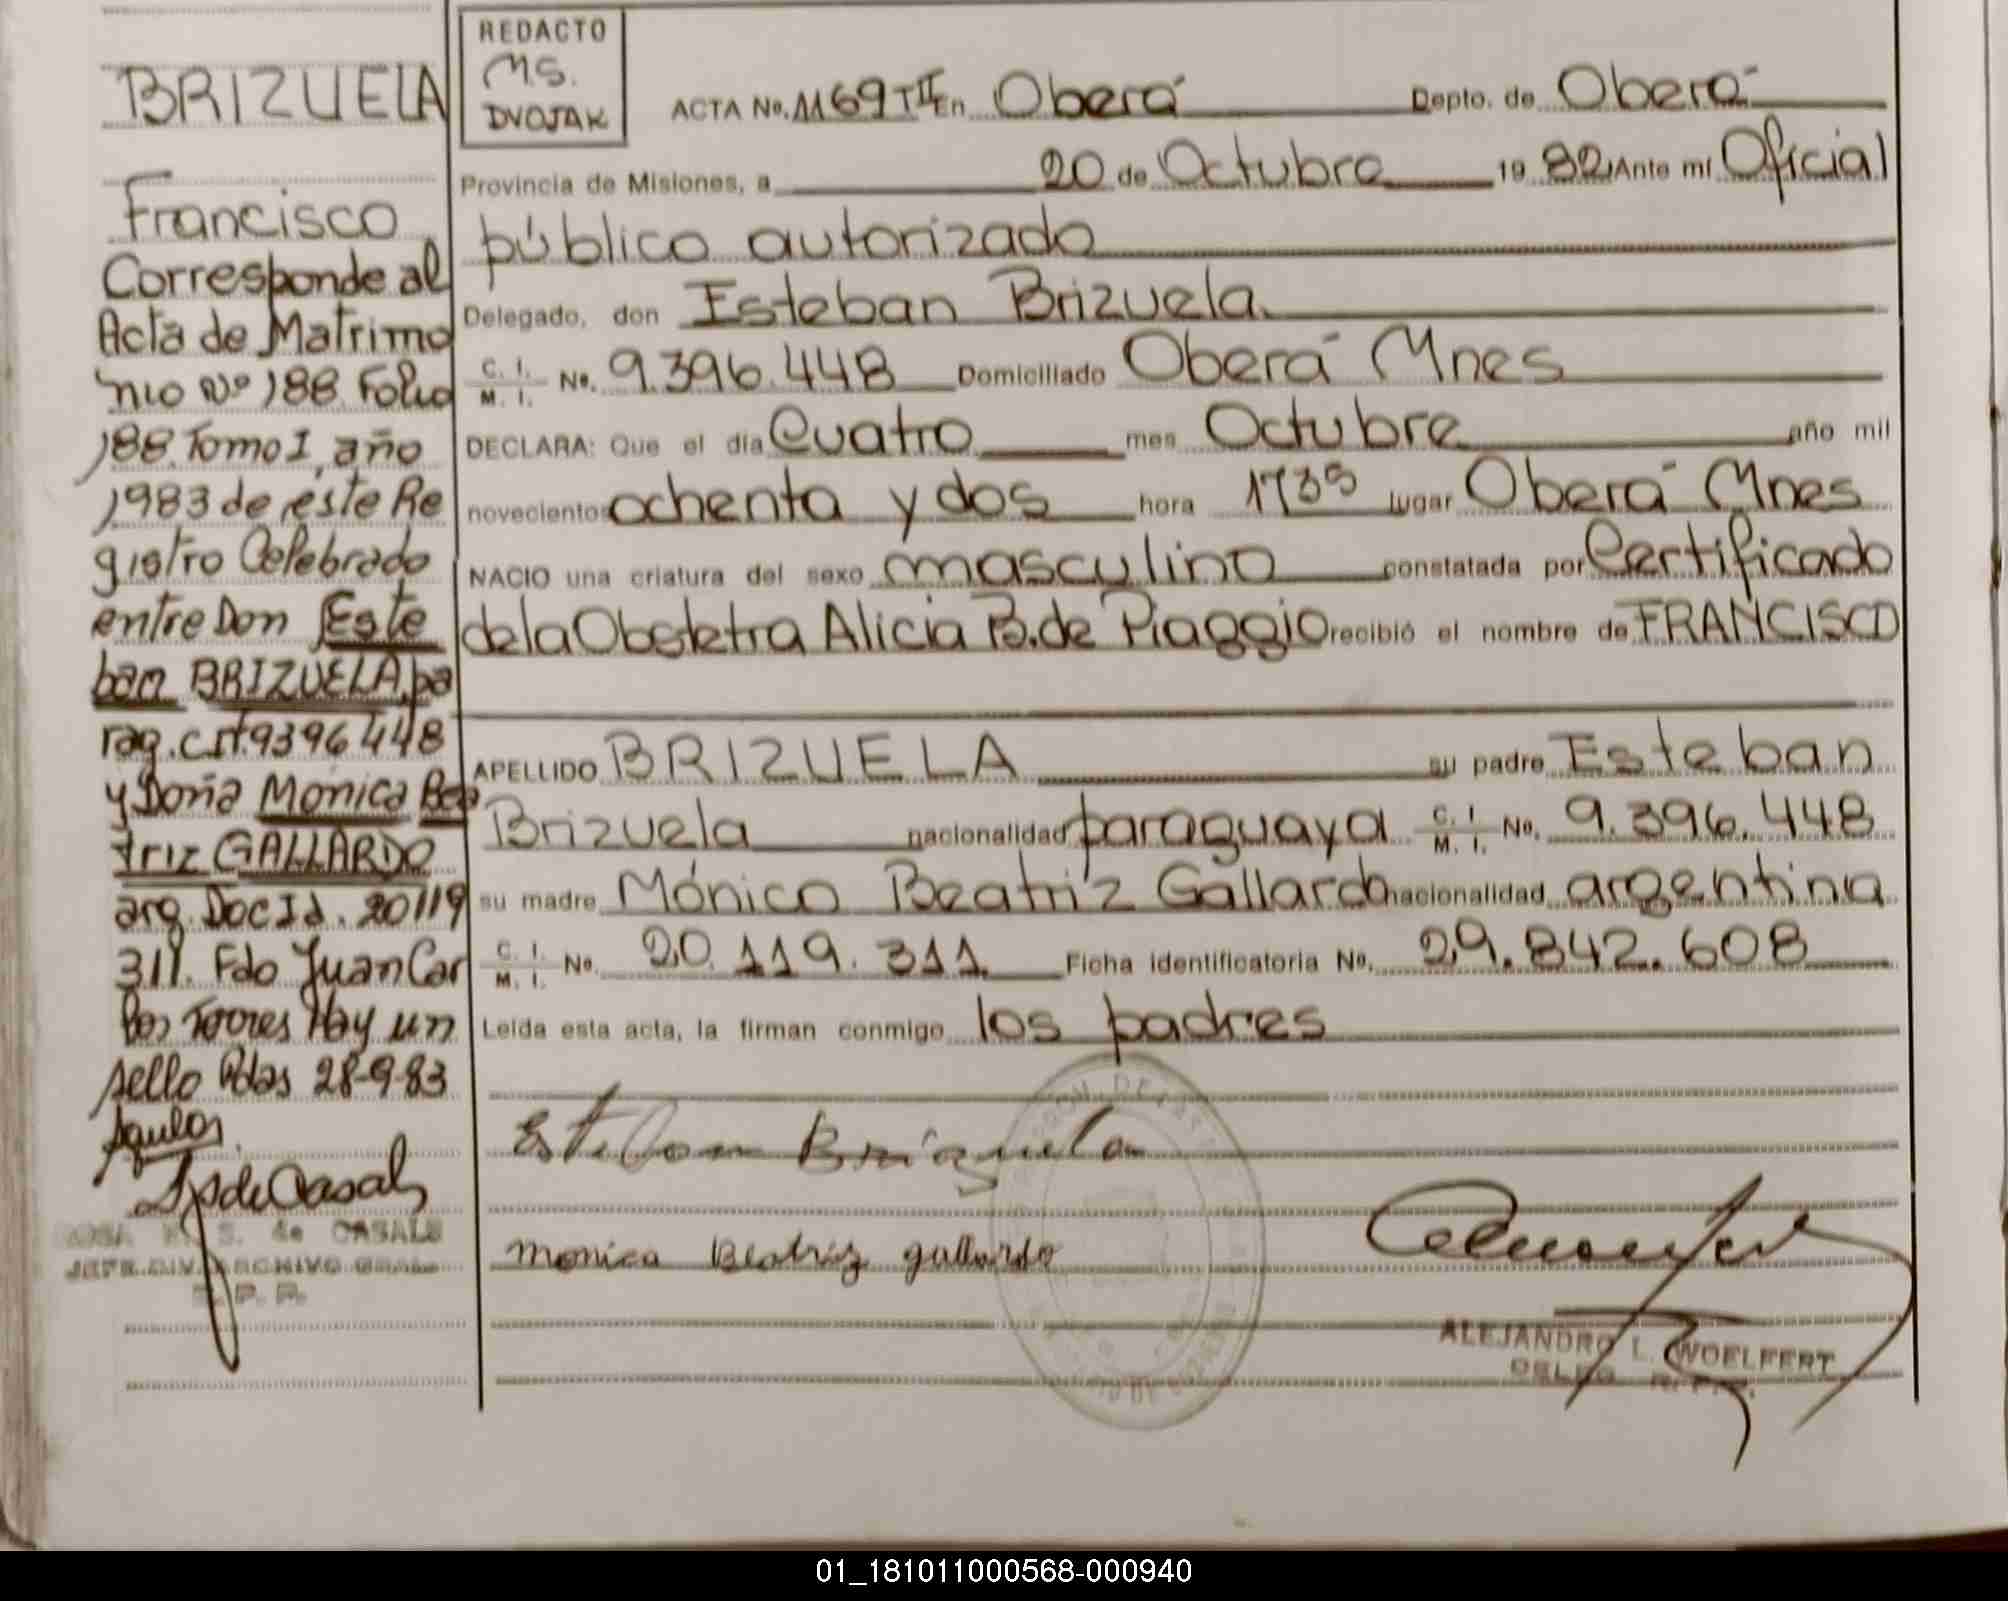 BRIZUELA
Francisco
Corresponde al
Acta de Matrimo
nio Nº 188 Folio
188 Tomo I, año
1983 de este Re
gistro Celebrado
entre Don Este
ban BRIZUELA, pa
rag. C.I. 9396448
y Doña Monica Bea
triz GALLARDO
arg. Doc Id. 20119
311. Fdo Juan Car
los Torres Hay un
sello Pdas 28-9-83
S. de CASALS
JEFE DIV. ARCHIVO GRAL.
R. P. P.
REDACTO
M.S.
DVOJAK
ACTA No. 1169 TII En Oberá Depto. de Oberá
Provincia de Misiones, a 20 de Octubre 19 82 Ante mí Oficial
público autorizado
Delegado, don Esteban Brizuela
C. I. M. I. No. 9.396.448 Domiciliado Oberá Mnes
DECLARA: Que el día Cuatro mes Octubre año mil
novecientos ochenta y dos hora 1735 lugar Oberá Mnes
NACIO una criatura del sexo masculino constatada por Certificado
de la Obstetra Alicia B. de Piaggio recibió el nombre de FRANCISCO
APELLIDO BRIZUELA su padre Esteban
Brizuela nacionalidad paraguaya C. I. M. I. No. 9.396.448
su madre Mónica Beatriz Gallardo nacionalidad argentina
C. I. M. I. No. 20.119.311 Ficha identificatoria No. 29.842.608
Leída esta acta, la firman conmigo los padres
Esteban Brizuela
Monica Beatriz gallardo
ALEJANDRO L. WOELFERT
DELEG. R.P.P.
01_181011000568-000940